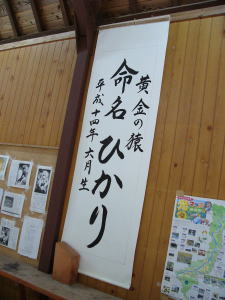 黄金の猿
命名ひかり
平成十四年六月生